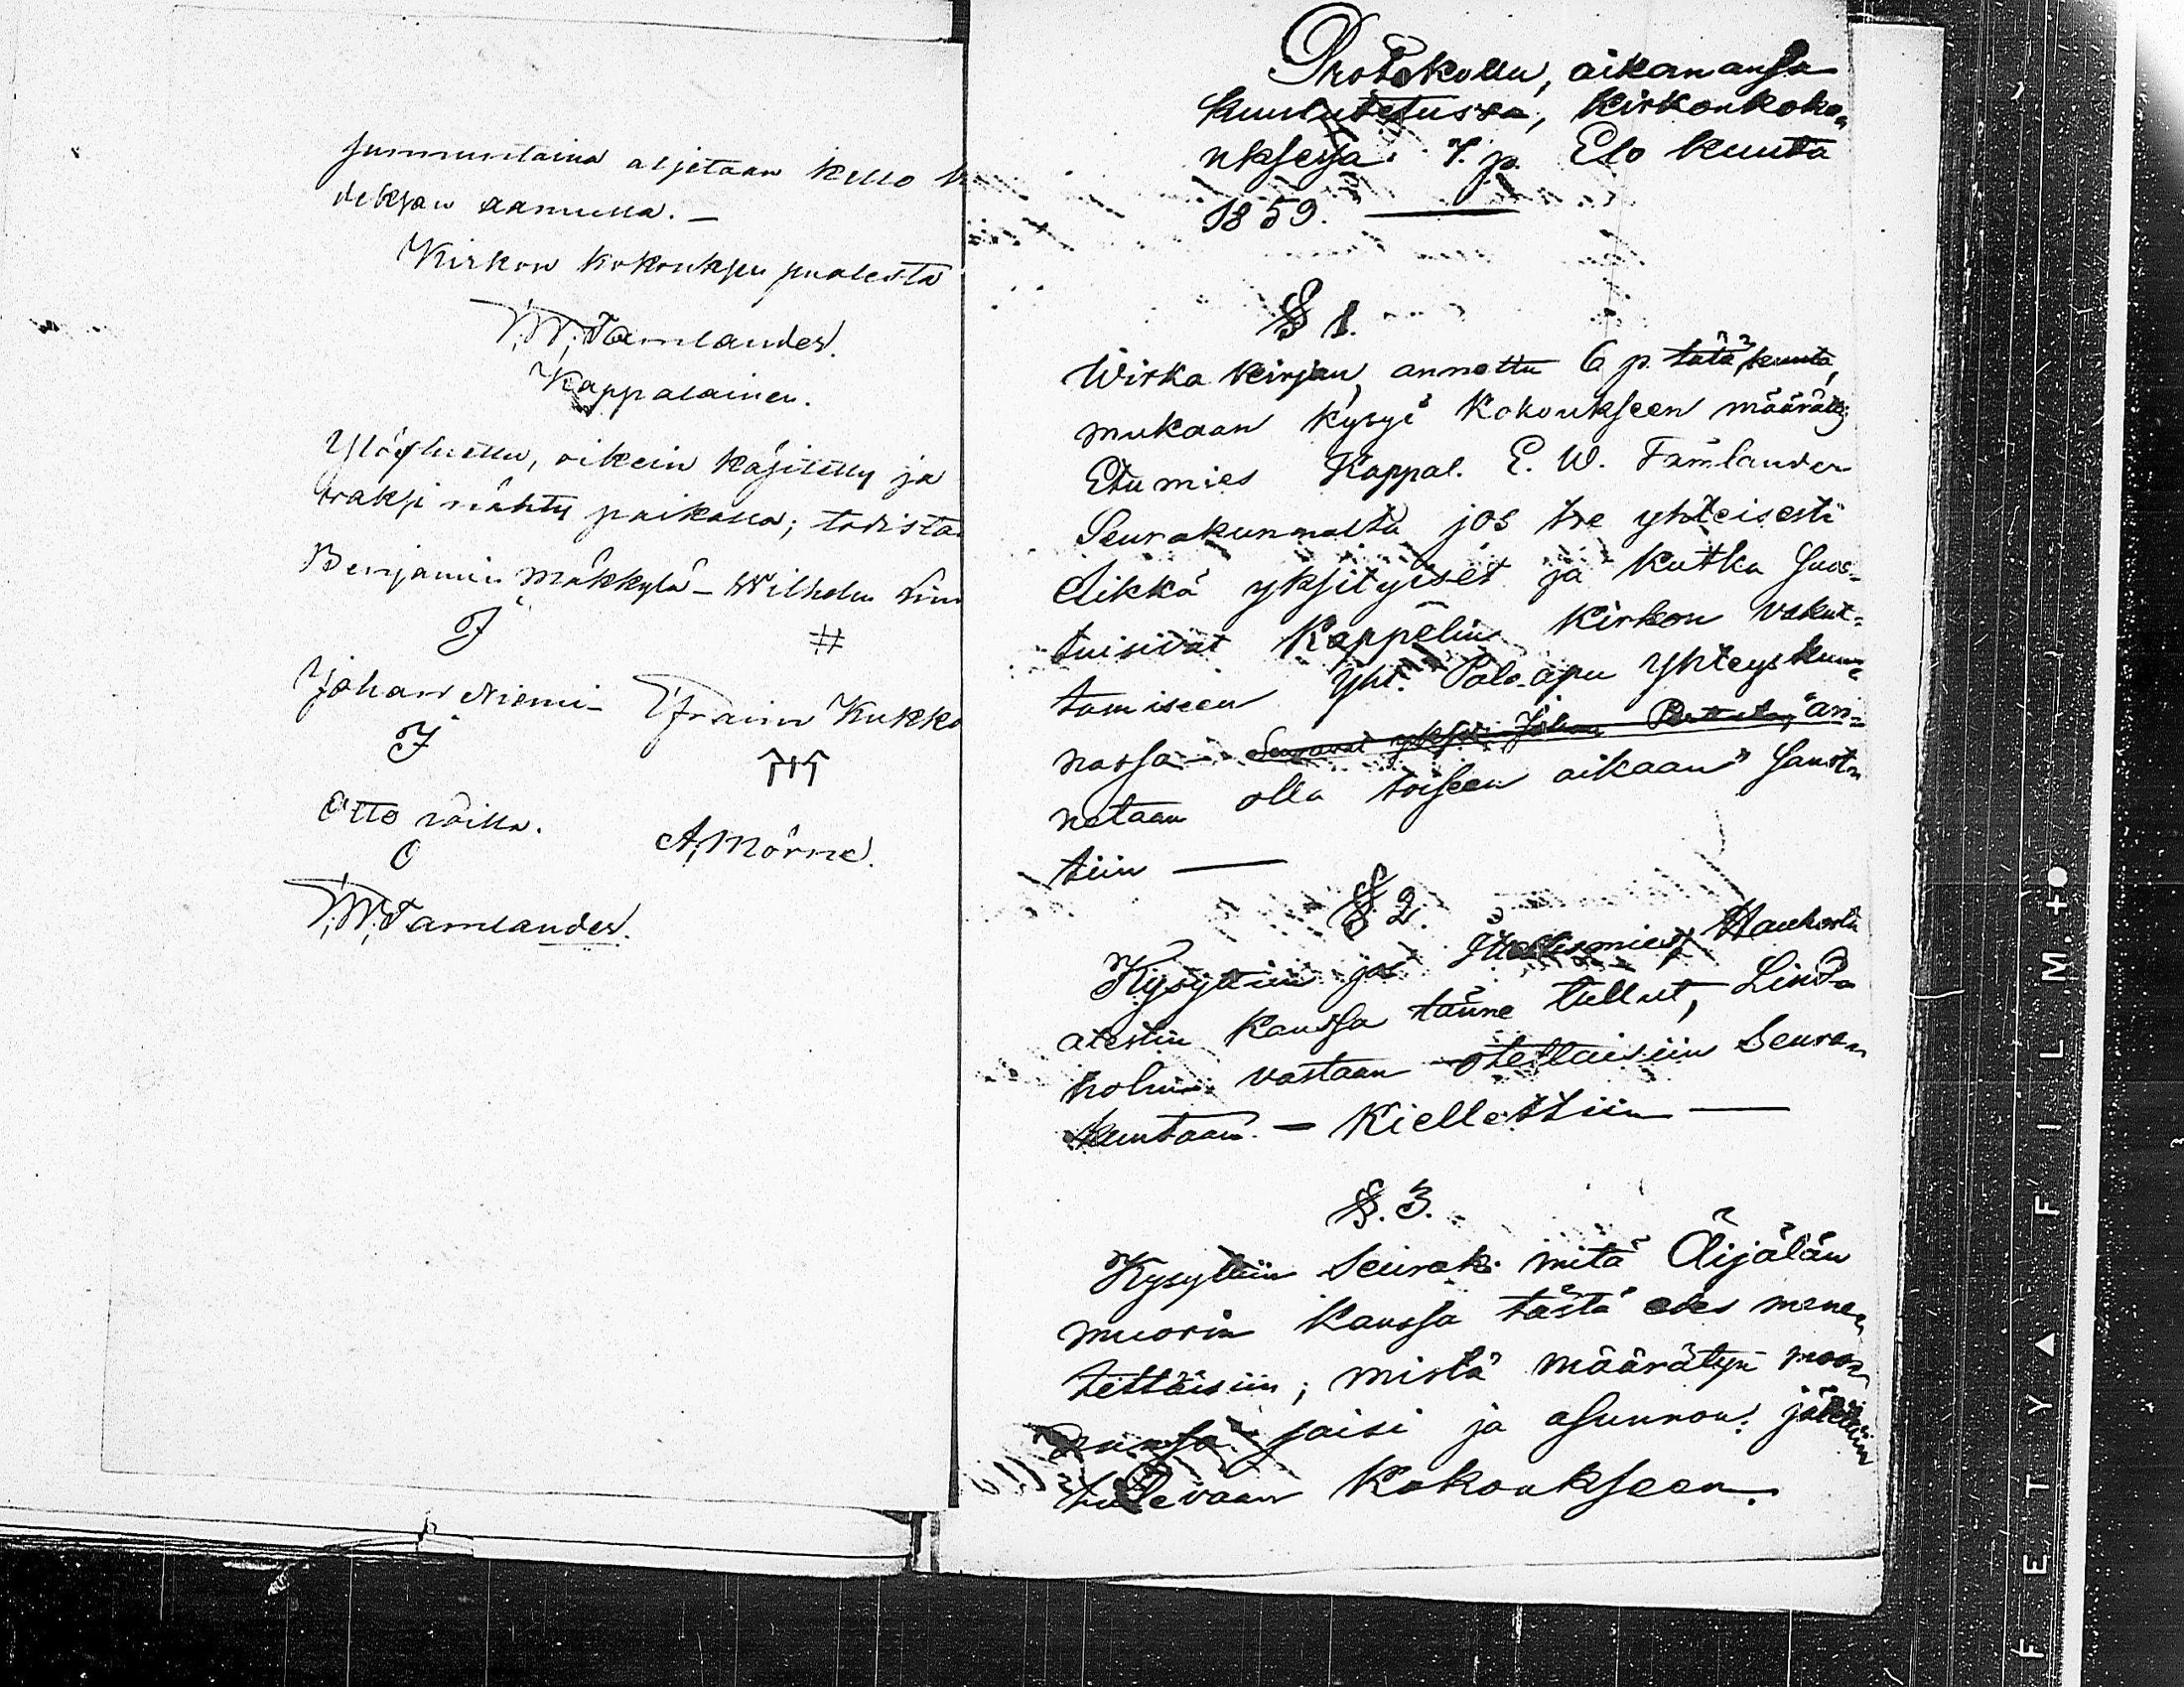 sunnuntaina aljetaan kello
deksan aamulla. —
Kirkon kokouksen puolesta
E. W. Tamlander.
Kappalainen.
Ylösluettu, oikein käsitetty ja
oraksi nähty paikalla; todista
Benjamin Mäkkylä — Wilhelm
#
Johan Niemi — Efraim Kukko
Otto
A. Mörne.
E. W. Tamlander.
Protokollu, aikanansa
kuulutetussa, kirkonkoko„
uksesa 7. p. Elo kuuta
1859. —
§ 1.
Wirka kirjan, annettu 6 p. tätä kuuta,
mukaan kysyi Kokoukseen määrätty
Etumies Kappal. E. W. Tamlander
Seurakunnalta jos he yhteisesti
eikkä yksityiset ja kutka suos-
tuisivat Kappelin kirkon vakut-
tamiseen Yht. Palo-apu Yhteyskun-
nassa — Johan "an-
netaan olla toiseen aikaan" sanot„
tiin —
§ 2.
Kysyttiin jos Haukorta
atestin kanssa tänne tullut, Lind„
holm vastaan otettaisiin Seura„
kuntaan. — Kiellettiin —
§. 3.
Kysyttiin Seurak. mitä Äijälän
muorin kanssa tästä edes mene„
tettäisiin; mistä määrätyn
saisi ja asunnon: jätettiin
tulevaan Kokoukseen.
F E T Y ▲ F I L M. +●
3